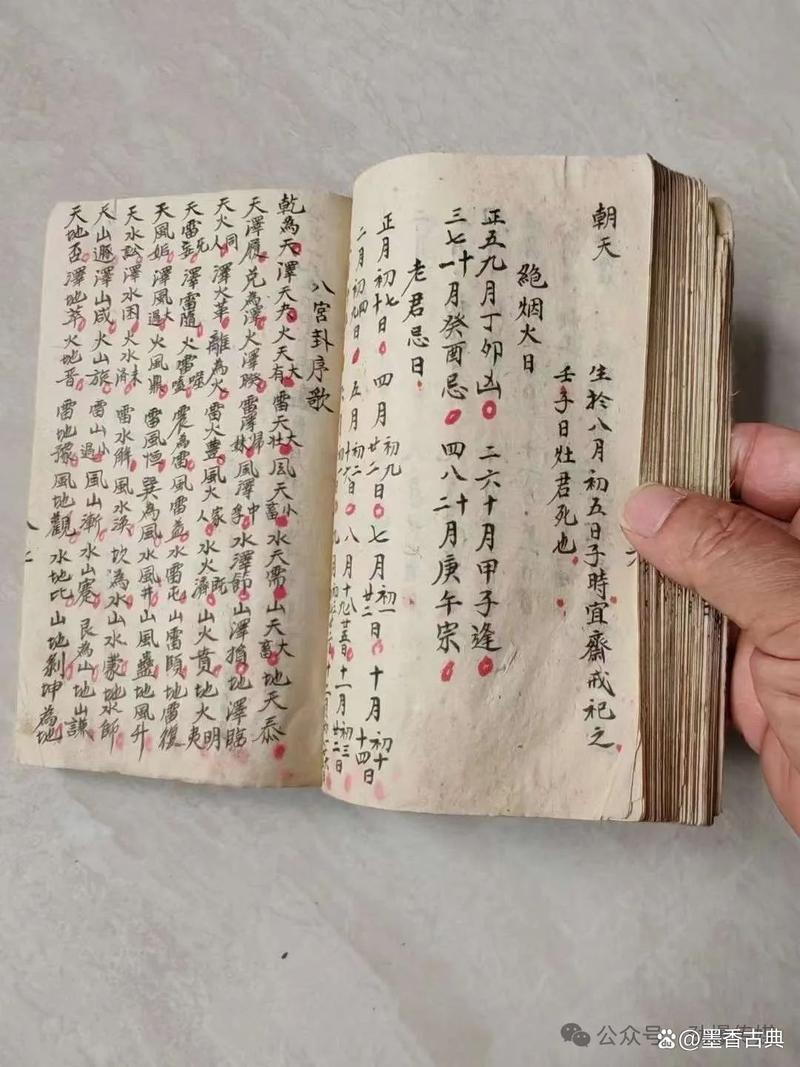 朝天
生於八月初五日子時宜齋戒祀之
壬子日灶君死也
絕烟火日
正五九月丁卯凶 二六十月甲子逢
三七十一月癸酉忌 四八十二月庚午宗
老君忌日
正月初七初十日 四月初九廿二日 七月初一廿二日 十月初十十四日
二月初四初九日 五月初二十六日 八月十九廿五日 十一月初三廿二日
八宮卦序歌
乾為天 澤天夬 火天大有 雷天大壯 風天小畜 水天需 山天大畜 地天泰
天澤履 兌為澤 火澤睽 雷澤歸妹 風澤中孚 水澤節 山澤損 地澤臨
天火同人 澤火革 離為火 雷火豐 風火家人 水火既濟 山火賁 地火明夷
天雷无妄 澤雷隨 火雷噬嗑 震為雷 風雷益 水雷屯 山雷頤 地雷復
天風姤 澤風大過 火風鼎 雷風恒 巽為風 水風井 山風蠱 地風升
天水訟 澤水困 火水未濟 雷水解 風水渙 坎為水 山水蒙 地水師
天山遯 澤山咸 火山旅 雷山小過 風山漸 水山蹇 艮為山 地山謙
天地否 澤地萃 火地晋 雷地豫 風地觀 水地比 山地剝 坤為地
公众号
@墨香古典